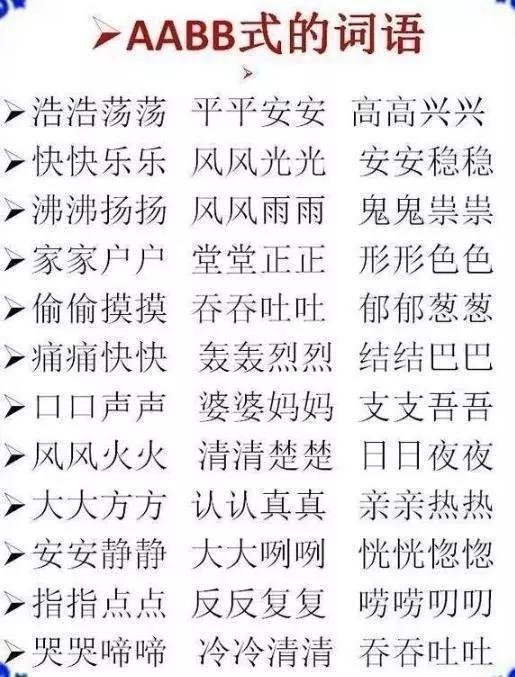 ➢AABB式的词语
➢
➢浩浩荡荡 平平安安 高高兴兴
➢快快乐乐 风风光光 安安稳稳
➢沸沸扬扬 风风雨雨 鬼鬼祟祟
➢家家户户 堂堂正正 形形色色
➢偷偷摸摸 吞吞吐吐 郁郁葱葱
➢痛痛快快 轰轰烈烈 结结巴巴
➢口口声声 婆婆妈妈 支支吾吾
➢风风火火 清清楚楚 日日夜夜
➢大大方方 认认真真 亲亲热热
➢安安静静 大大咧咧 恍恍惚惚
➢指指点点 反反复复 唠唠叨叨
➢哭哭啼啼 冷冷清清 吞吞吐吐